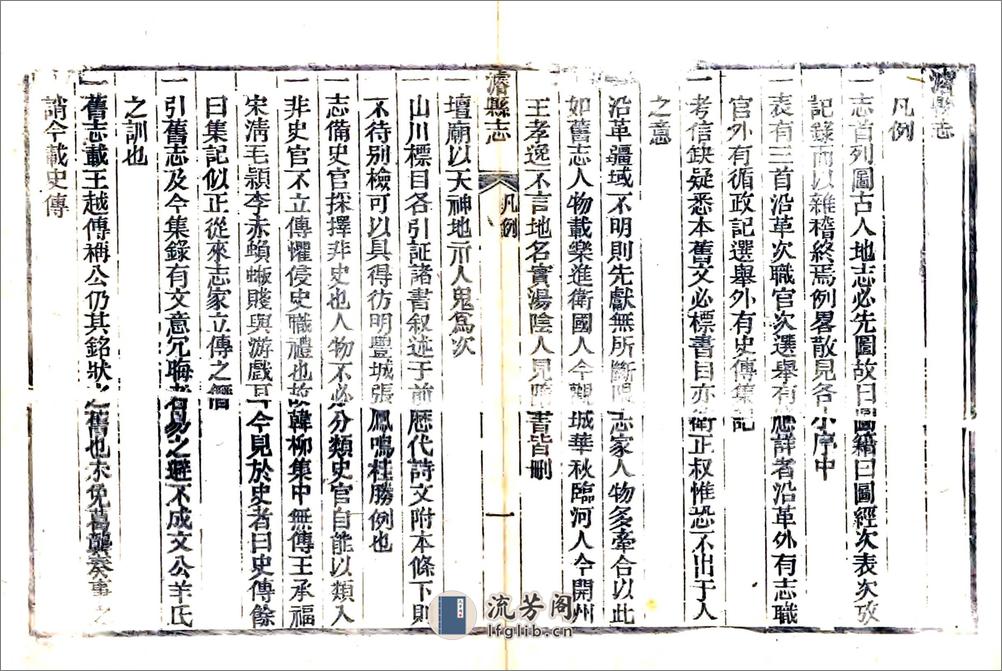 濬縣志
凡例
一志首列圖古人地志必先圖故曰圖籍曰圖經次表次攷
記錄而以雜稽終焉例畧散見各小序中
一表有三首沿革次職官次選舉有應詳者沿革外有志職
官外有循政記選舉外有史傳集記
一考信缺疑悉本舊文必標書目亦衛正叔惟恐不出于人
之意
沿革疆域不明則先獻無所斷限志家人物多牽合以此
如舊志人物載樂進衛國人今觀城華秋臨河人今開州
王孝逸不言地名實湯陰人見隋書皆刪
濬縣志
凡例
一
一壇廟以天神地示人鬼為次
一山川標目各引証諸書叙述于前歷代詩文附本條下則
不待別檢可以具得彷明豐城張鳳鳴桂勝例也
一志備史官採擇非史也人物不必分類史官自能以類入
一非史官不立傳懼侵史職禮也故韓柳集中無傳王承福
宋清毛穎李赤蝜蝂賤與游戲耳今見於史者曰史傳餘
曰集記似正從來志家立傳之僭
一引舊志及今集錄有文意冗晦者有易之避不成文公羊氏
之訓也
一舊志載王越傳稱公仍其銘狀之舊也未免葛龔奏事之
誚今載史傳
流芳阁
lfglib.cn